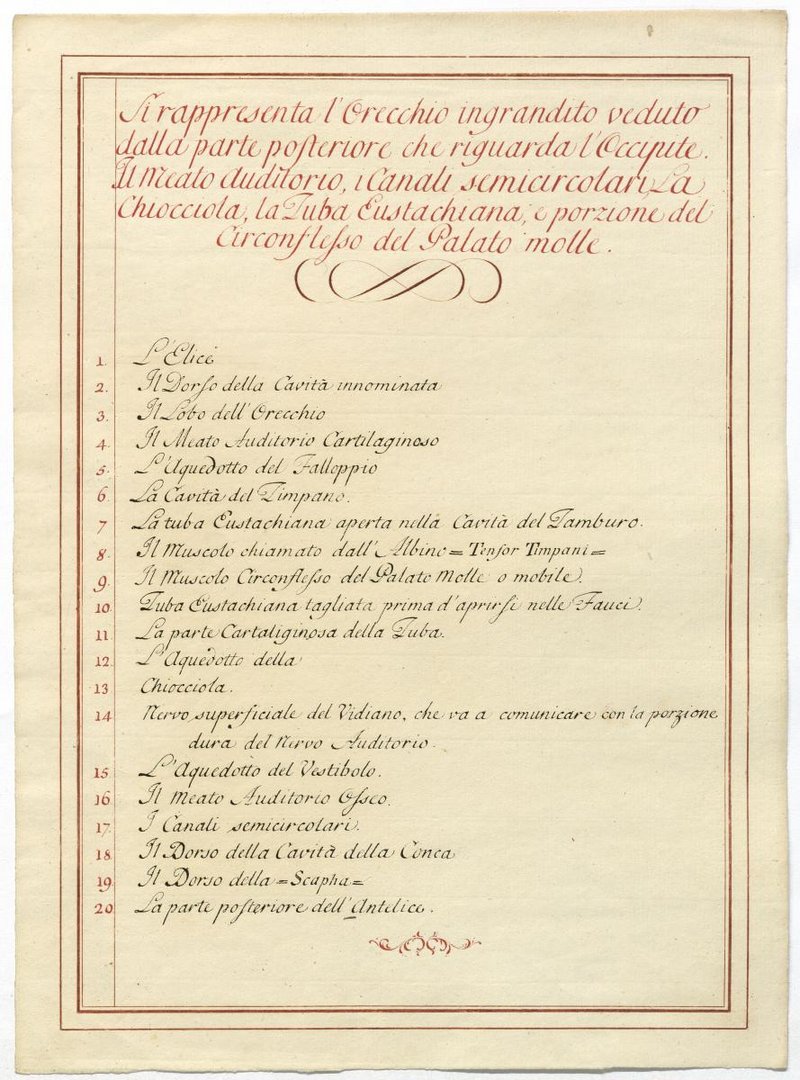 Si rappresenta l'Orecchio ingrandito veduto
dalla parte posteriore che riguarda l'Occipite.
Il Meato Auditorio, i Canali semicircolari, La
Chiocciola, la Tuba Eustachiana, e porzione del
Circonflesso del Palato molle.
1. L'Elice
2. Il Dorso della Cavità innominata
3. Il Lobo dell'Orecchio
4. Il Meato Auditorio Cartilaginoso
5. L'Aquedotto del Falloppio
6. La Cavità del Timpano.
7 La tuba Eustachiana aperta nella Cavità del Tamburo.
8. Il Muscolo chiamato dall'Albino = Tensor Timpani =
9. Il Muscolo Circonflesso del Palato Molle o mobile.
10. Tuba Eustachiana tagliata prima d'aprirsi nelle Fauci.
11 La parte Cartaliginosa della Tuba.
12. L'Aquedotto della
13 Chiocciola.
14 Nervo superficiale del Vidiano, che va a comunicare con la porzione
dura del Nervo Auditorio.
15. L'Aquedotto del Vestibolo.
16. Il Meato Auditorio Osseo.
17. I Canali semicircolari.
18. Il Dorso della Cavità della Conca
19. Il Dorso della = Scapha =
20. La parte posteriore dell'Antelice.